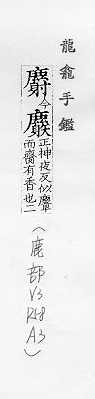 龍龕手鑑
麝今正神夜反似麞
而臍有香也二
(鹿部 V3 R18 A3)